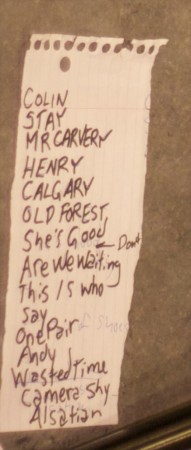 COLIN
STAY
MR CARVERY
HENRY
CALGARY
OLD FOREST
She's Good - Don't
Are We Waiting
This Is Who
Say
One Pair of Shoes
Andy
Wasted Time
Camera Shy
Alsatian